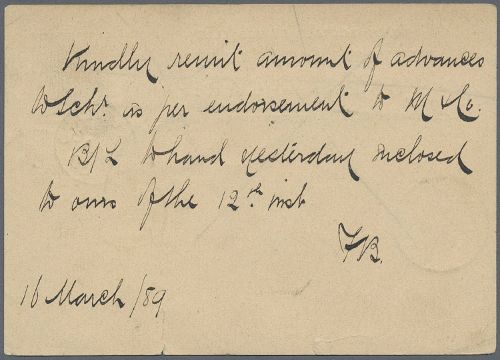 Kindly remit amount of advances
to Schr. as per endorsement to M & Co.
B/L to hand yesterday enclosed
to ours of the 12th inst
FB.
16 March /89